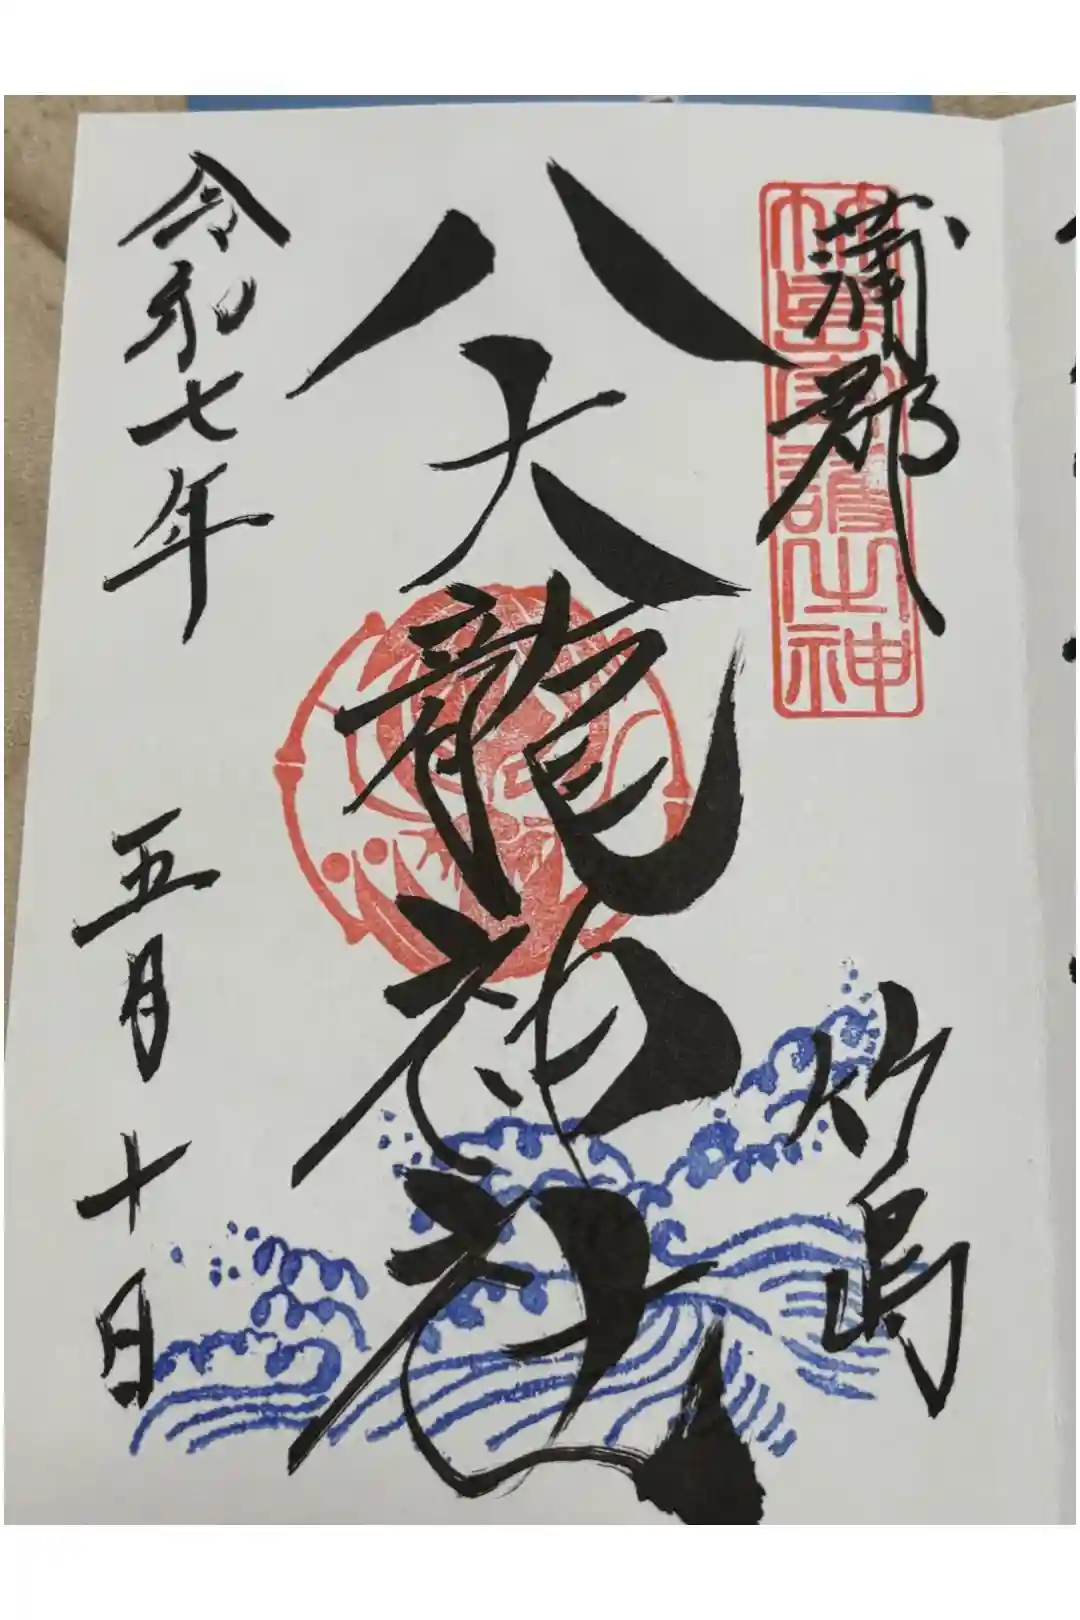 蒲郡
竹島
竹島守護之神
八大龍神社
令和七年
五月十日